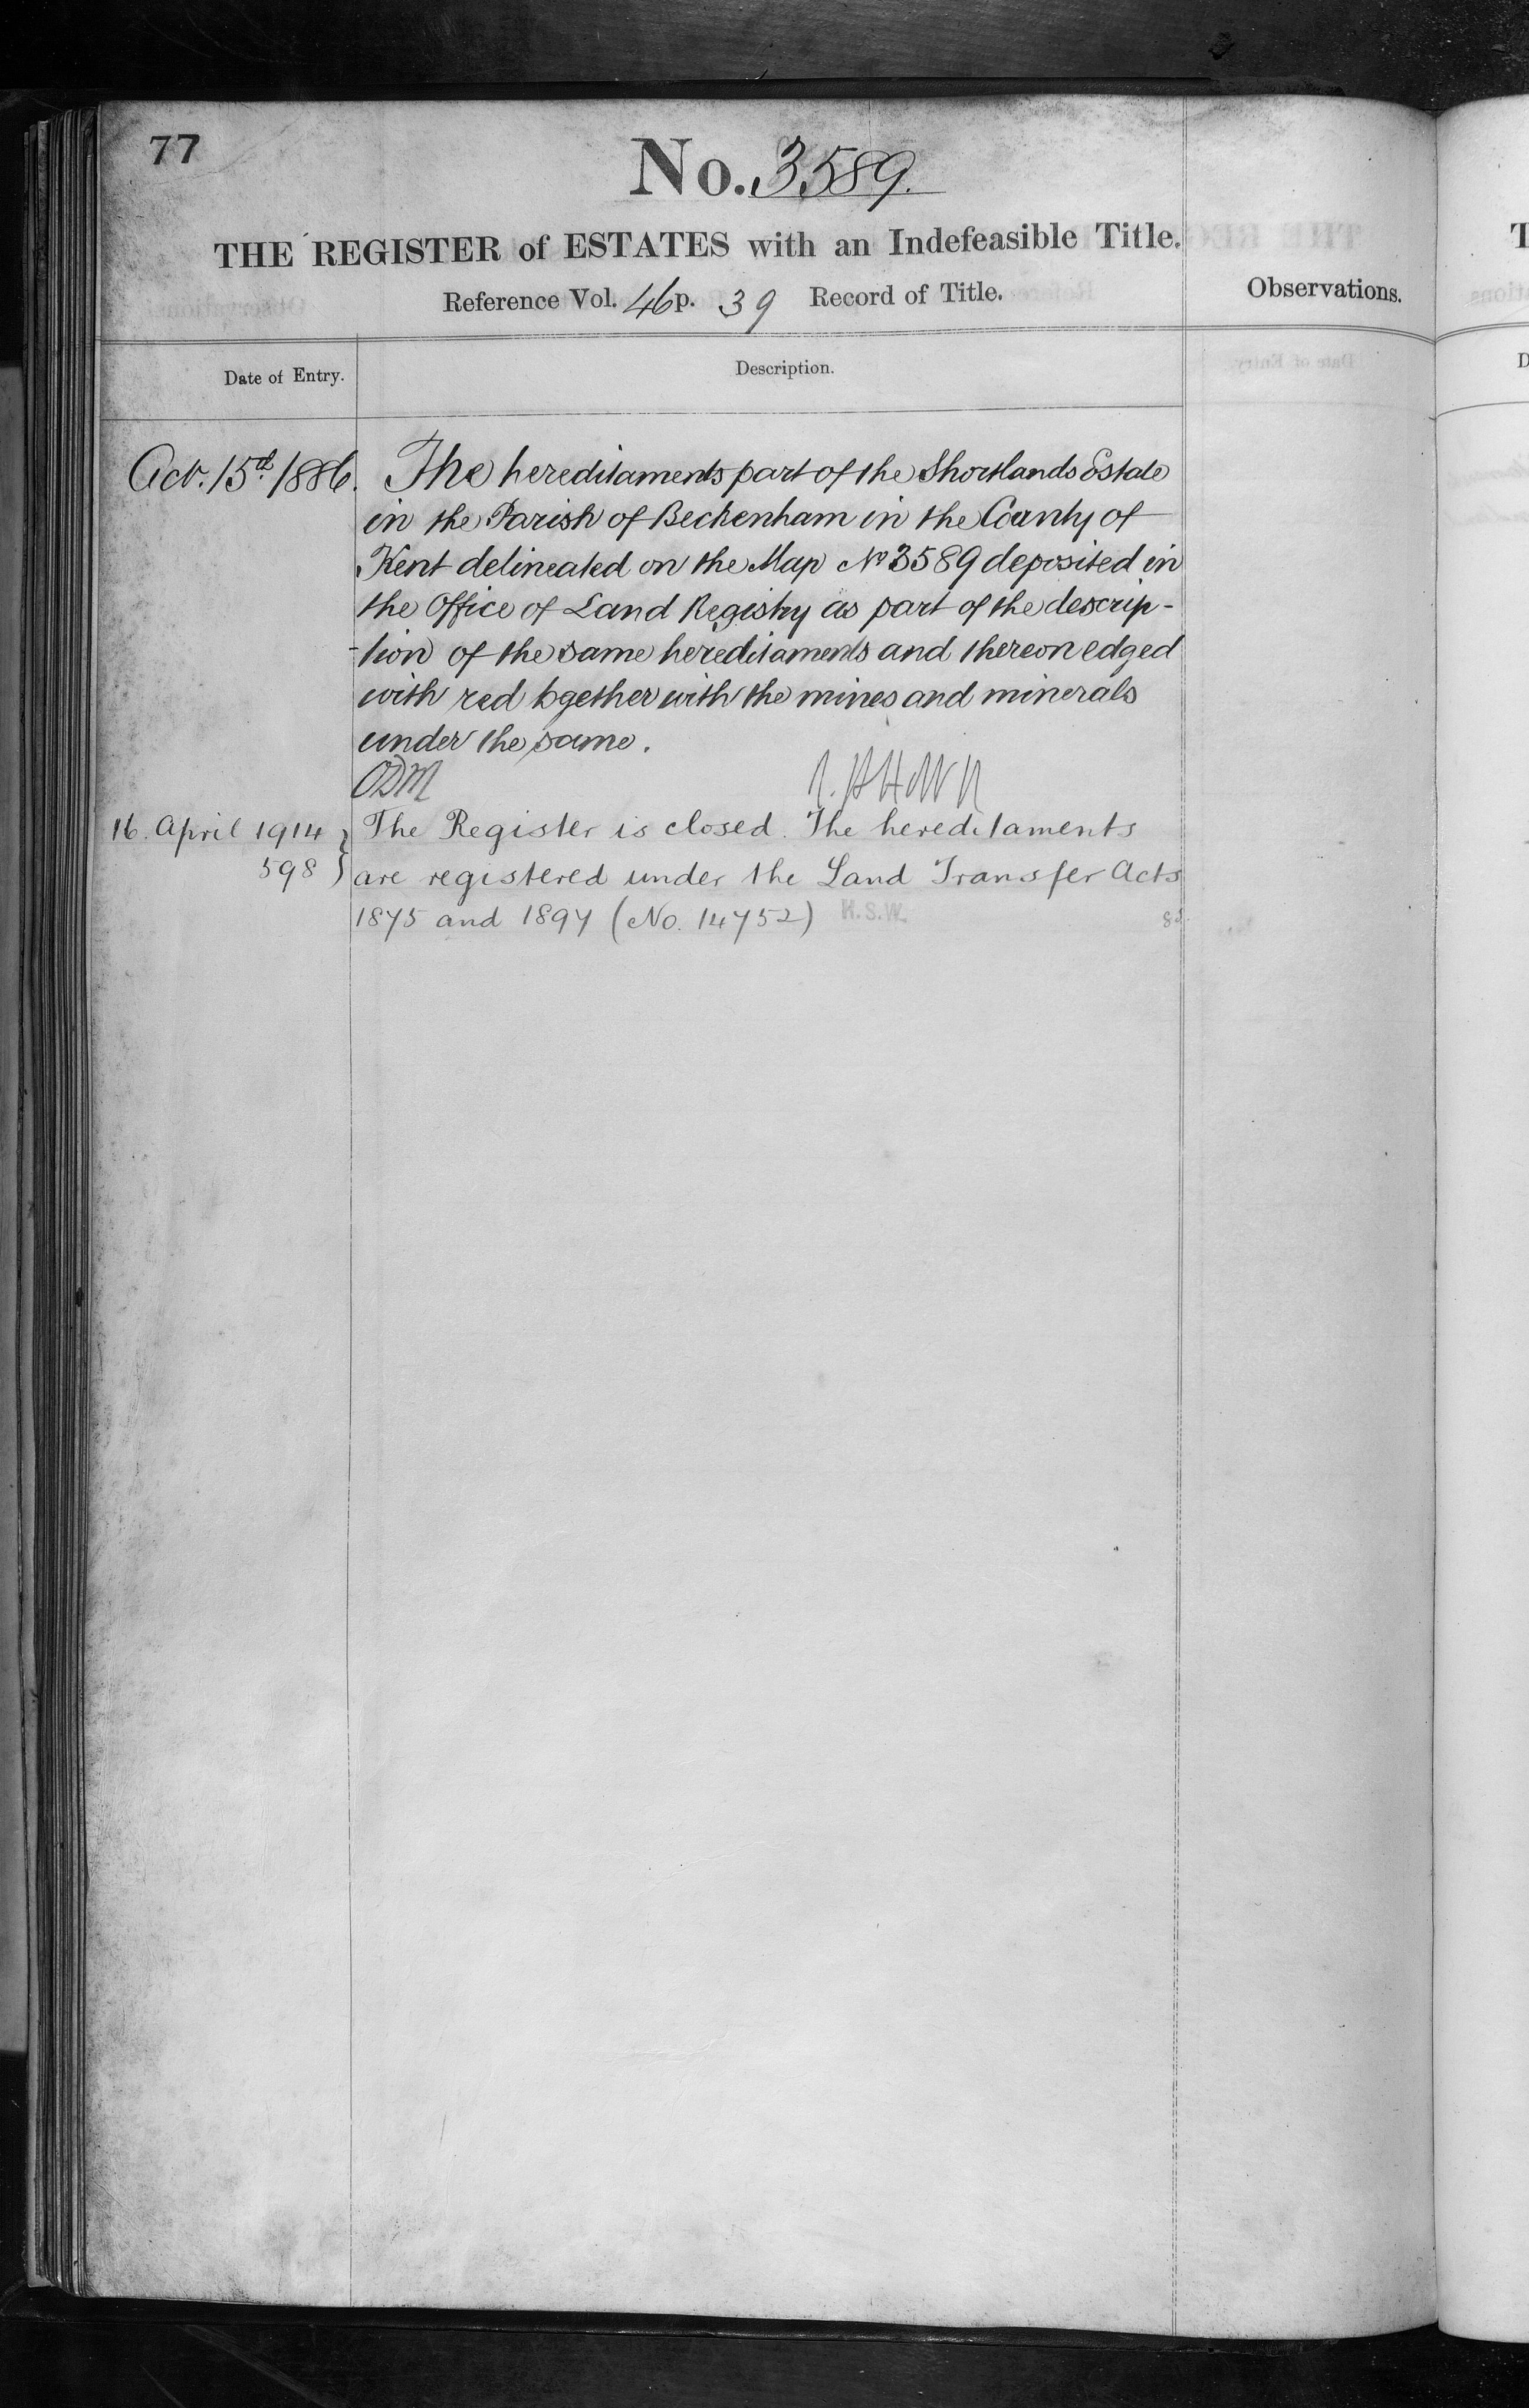 77
No. 3589.
THE REGISTER of ESTATES with an Indefeasible Title.
Reference Vol. 46 p. 39 Record of Title.
Observations.
Date of Entry.
Description.
Oct. 15th 1886. The hereditaments part of the Shortlands Estate
in the Parish of Beckenham in the County of
Kent delineated on the Map No 3589 deposited in
the Office of Land Registry as part of the descrip-
-tion of the same hereditaments and thereon edged
with red together with the mines and minerals
under the same.
ODM
16. April 1914 } The Register is closed. The hereditaments
598 } are registered under the Land Transfer Acts
1875 and 1897 (No. 14752) K.S.W.